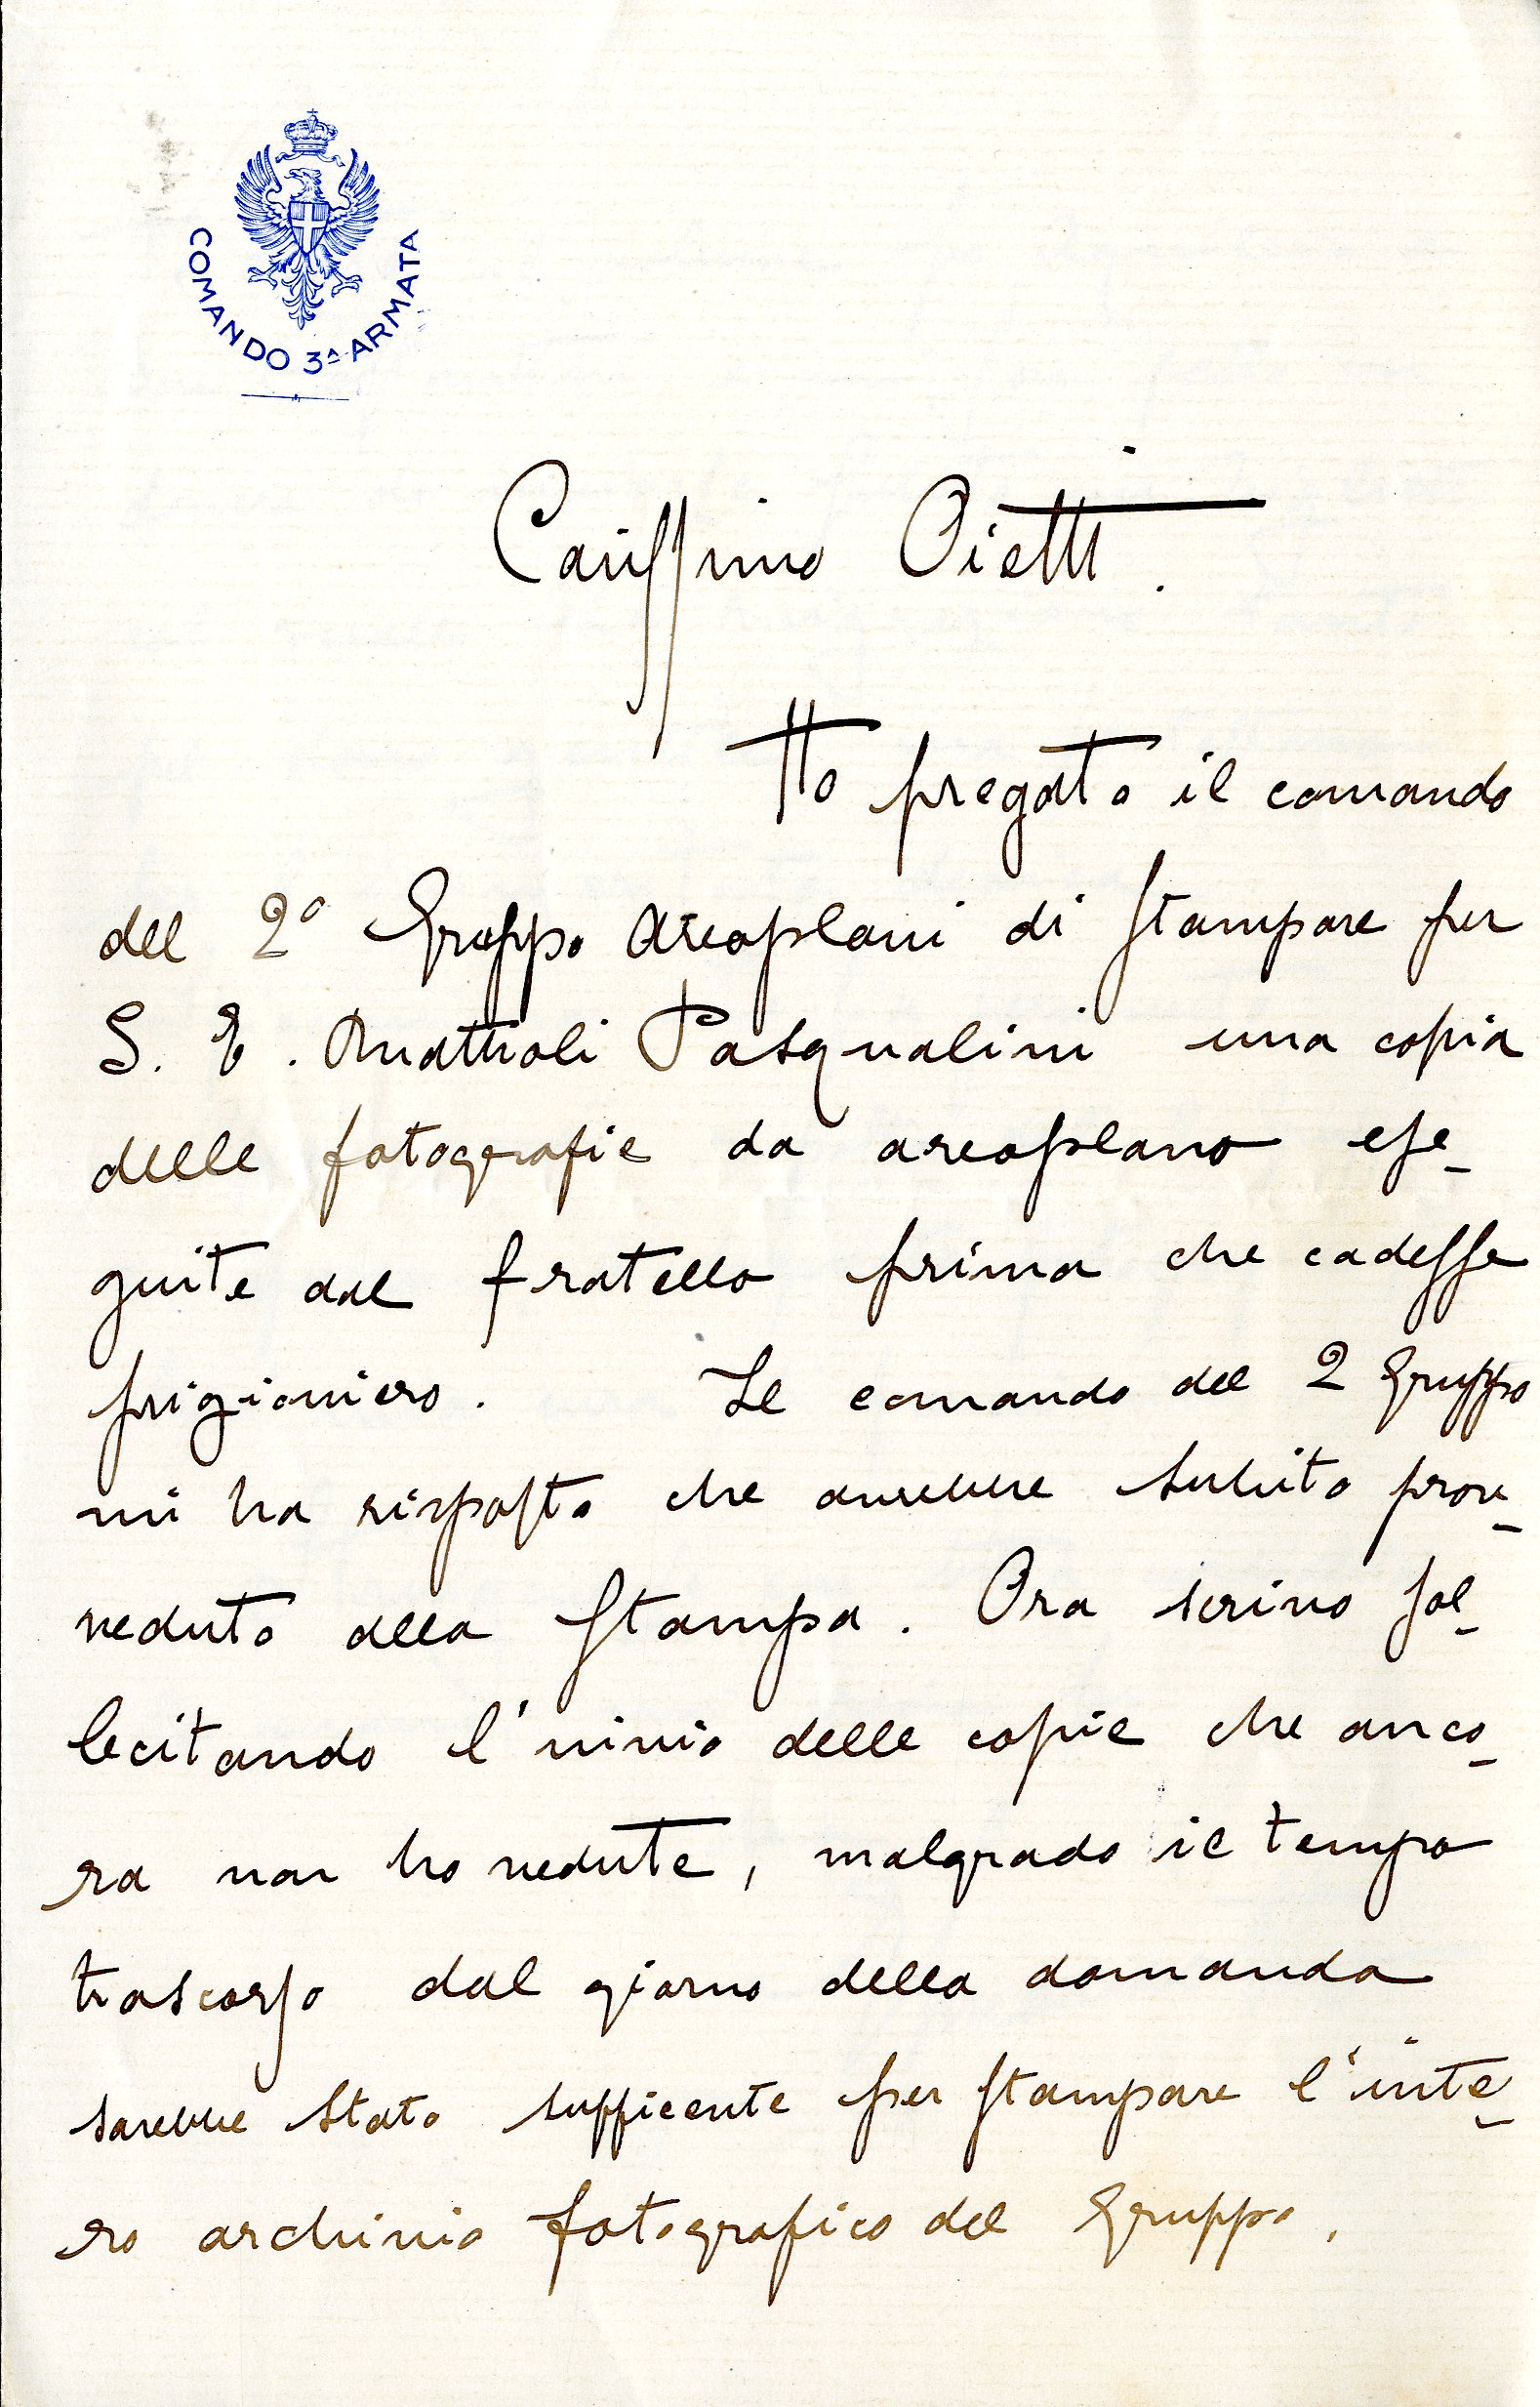 COMANDO 3ª ARMATA
Carissimo Ojetti.
Ho pregato il comando
del 2º Gruppo Areoplani di stampare per
S. E. Mattioli Pasqualini una copia
delle fotografie da areoplano ese-
guite dal fratello prima che cadesse
prigioniero. Il comando del 2 Gruppo
mi ha risposto che avrebbe subito prov-
veduto alla stampa. Ora scrivo sol-
lecitando l'invio delle copie che anco-
ra non ho vedute, malgrado il tempo
trascorso dal giorno della domanda
sarebbe stato sufficente per stampare l'inte-
ro archivio fotografico del Gruppo.